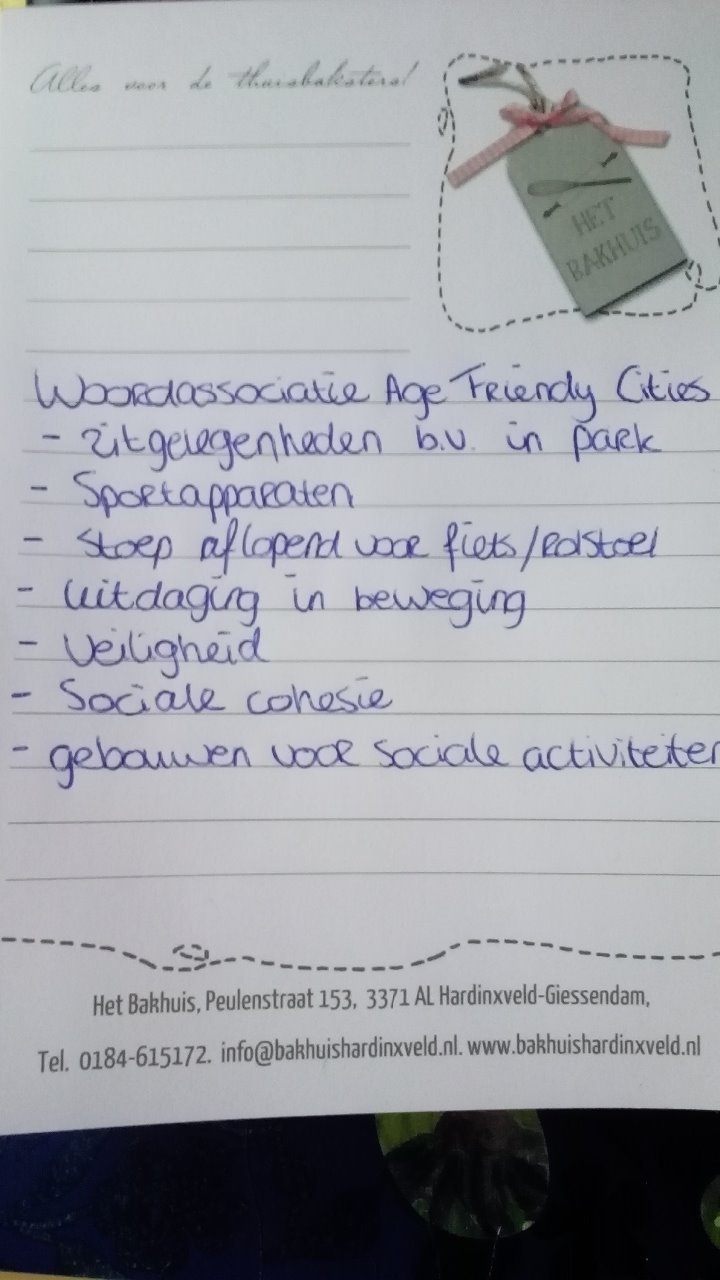 Alles voor de thuisbaksters!
HET
BAKHUIS
Woordassociatie Age Friendy Cities
- Zitgelegenheden b.v. in park
- Sportapparaten
- Stoep aflopend voor fiets/rolstoel
- Uitdaging in beweging
- Veiligheid
- Sociale cohesie
- gebouwen voor sociale activiteiten
Het Bakhuis, Peulenstraat 153, 3371 AL Hardinxveld-Giessendam,
Tel. 0184-615172. info@bakhuishardinxveld.nl. www.bakhuishardinxveld.nl